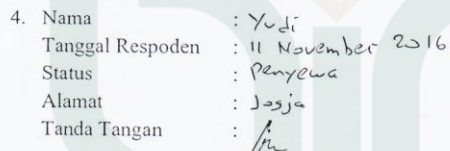 4. Nama : Yudi
Tanggal Respoden : 11 November 2016
Status : Penyewa
Alamat : Jogja
Tanda Tangan :